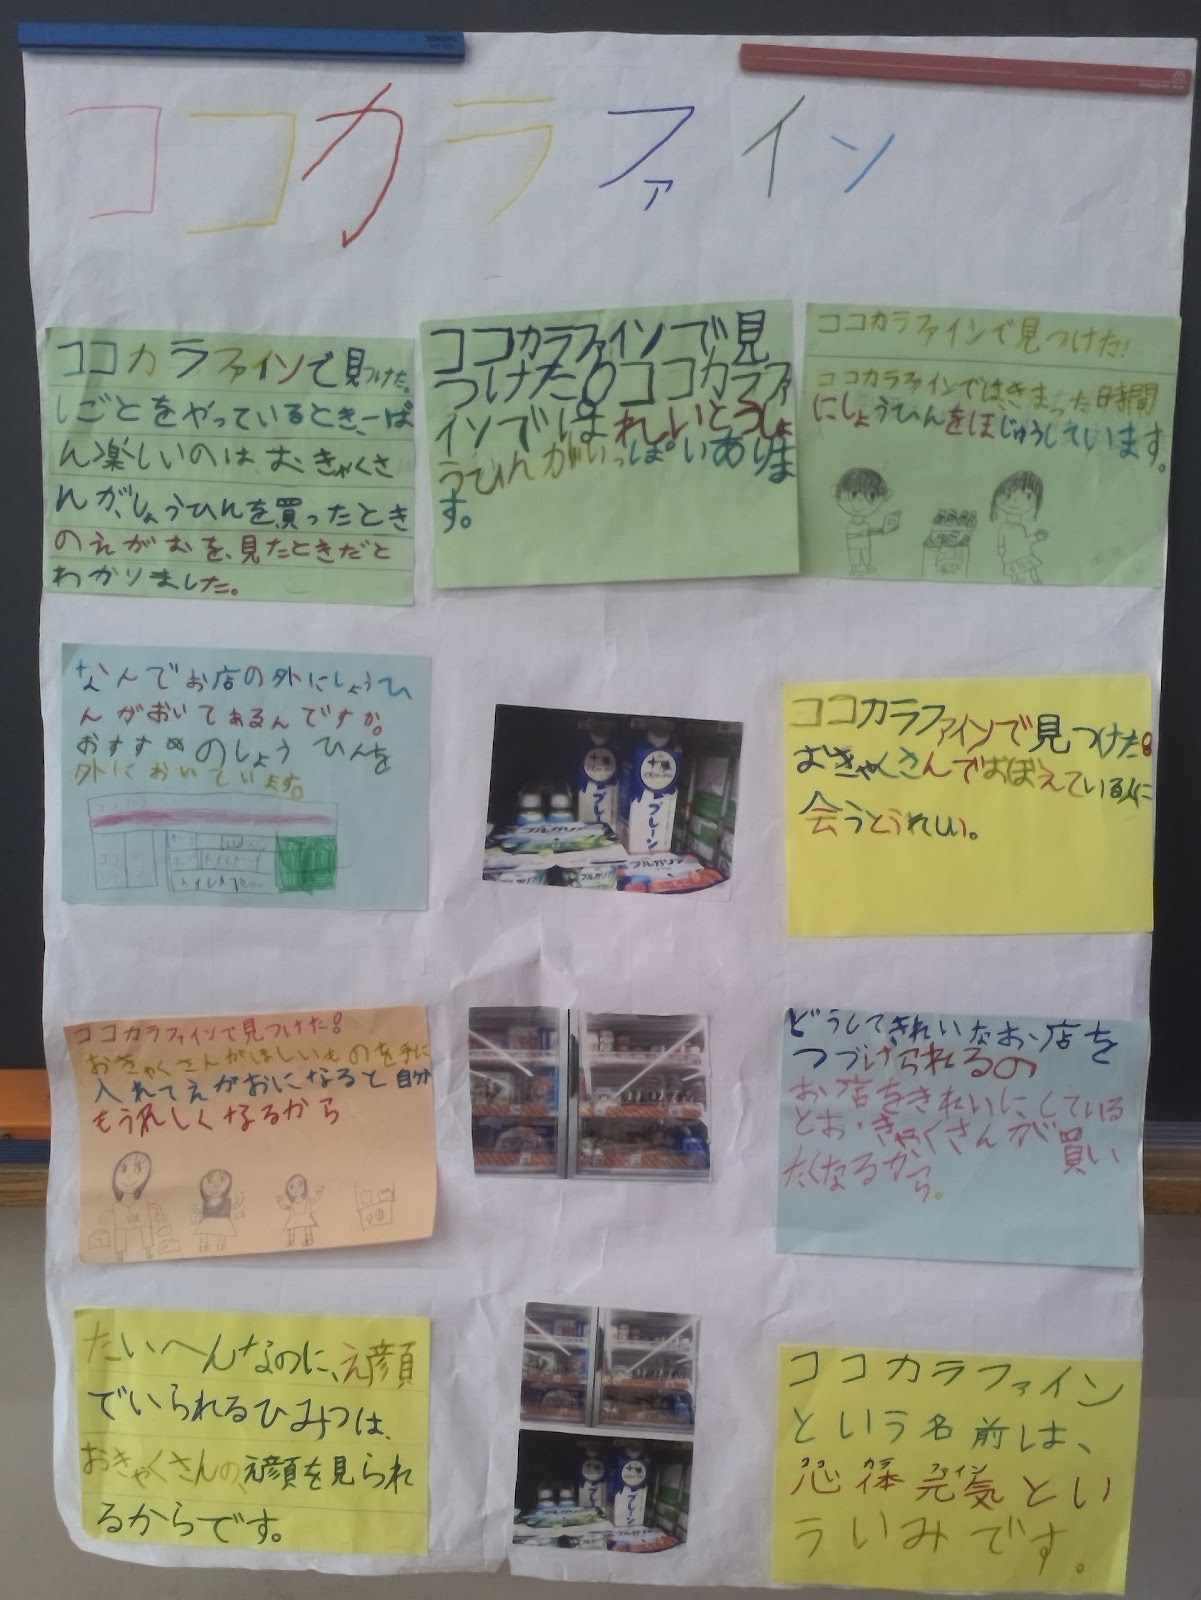 ココカラファイン
ココカラファインで見つけた。
しごとをやっているとき、一ば
ん楽しいのはおきゃくさ
んが、しょうひんを、買ったとき
のえがおを、見たときだと
わかりました。
ココカラファインで見
つけた。ココカラファ
インでは れいとうしょ
うひんがいっぱいありま
す。
ココカラファインで見つけた!
ココカラファインではきまった時間
にしょうひんをほじゅうしています。
なんでお店の外にしょうひ
んがおいてあるんですか。
おすすめのしょうひんを
外においています。
プレーン
プレーン
ブルガリア
ブルガリア
ブルガリア
ココカラファインで見つけた!
おきゃくさんでおぼえている人に
会うとうれしい。
ココカラファインで見つけた!
おきゃくさんがほしいものを手に
入れてえがおになると自分
もうれしくなるから
どうしてきれいなお店を
つづけられるの
お店をきれいにしている
とおきゃくさんが買い
たくなるから。
たいへんなのに、え顔
でいられるひみつは、
おきゃくさんの、え顔を見られ
るからです。
プレーン
プレーン
ブルガリア
ココカラファイン
という名前は、
ココ カラ ファイン
心 体 元気とい
ういみです。